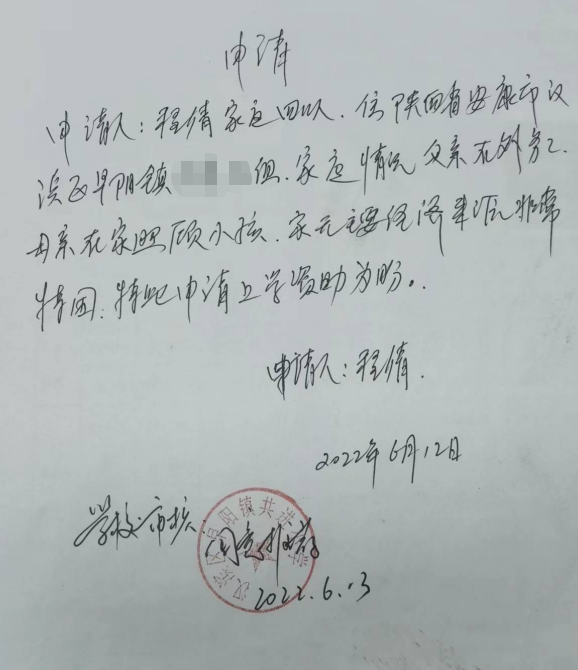 申请
申请人：程倩家庭四口人，住陕西省安康市汉
滨区早阳镇 组，家庭情况父亲在外务工
母亲在家照顾小孩，家无主要经济来源，非常
特困，特此申请上学资助为盼。
申请人：程倩.
2022年6月12日
学校审核
汉滨区早阳镇共进
同意
2022.6.13